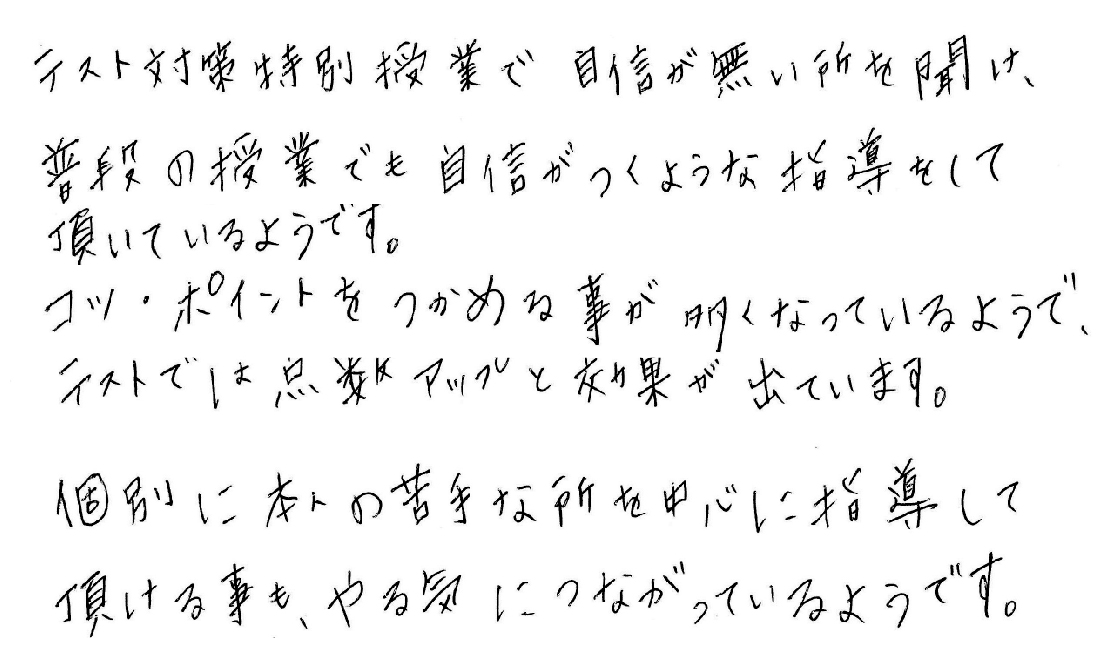 テスト対策特別授業で自信が無い所を聞け、
普段の授業でも自信がつくような指導をして
頂いているようです。
コツ・ポイントをつかめる事が多くなっているようで、
テストでは点数アップと効果が出ています。
個別に本人の苦手な所を中心に指導して
頂ける事も、やる気につながっているようです。